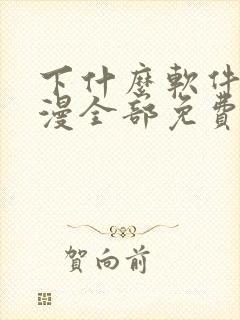 下什麼軟件
漫全部免費
賀向前